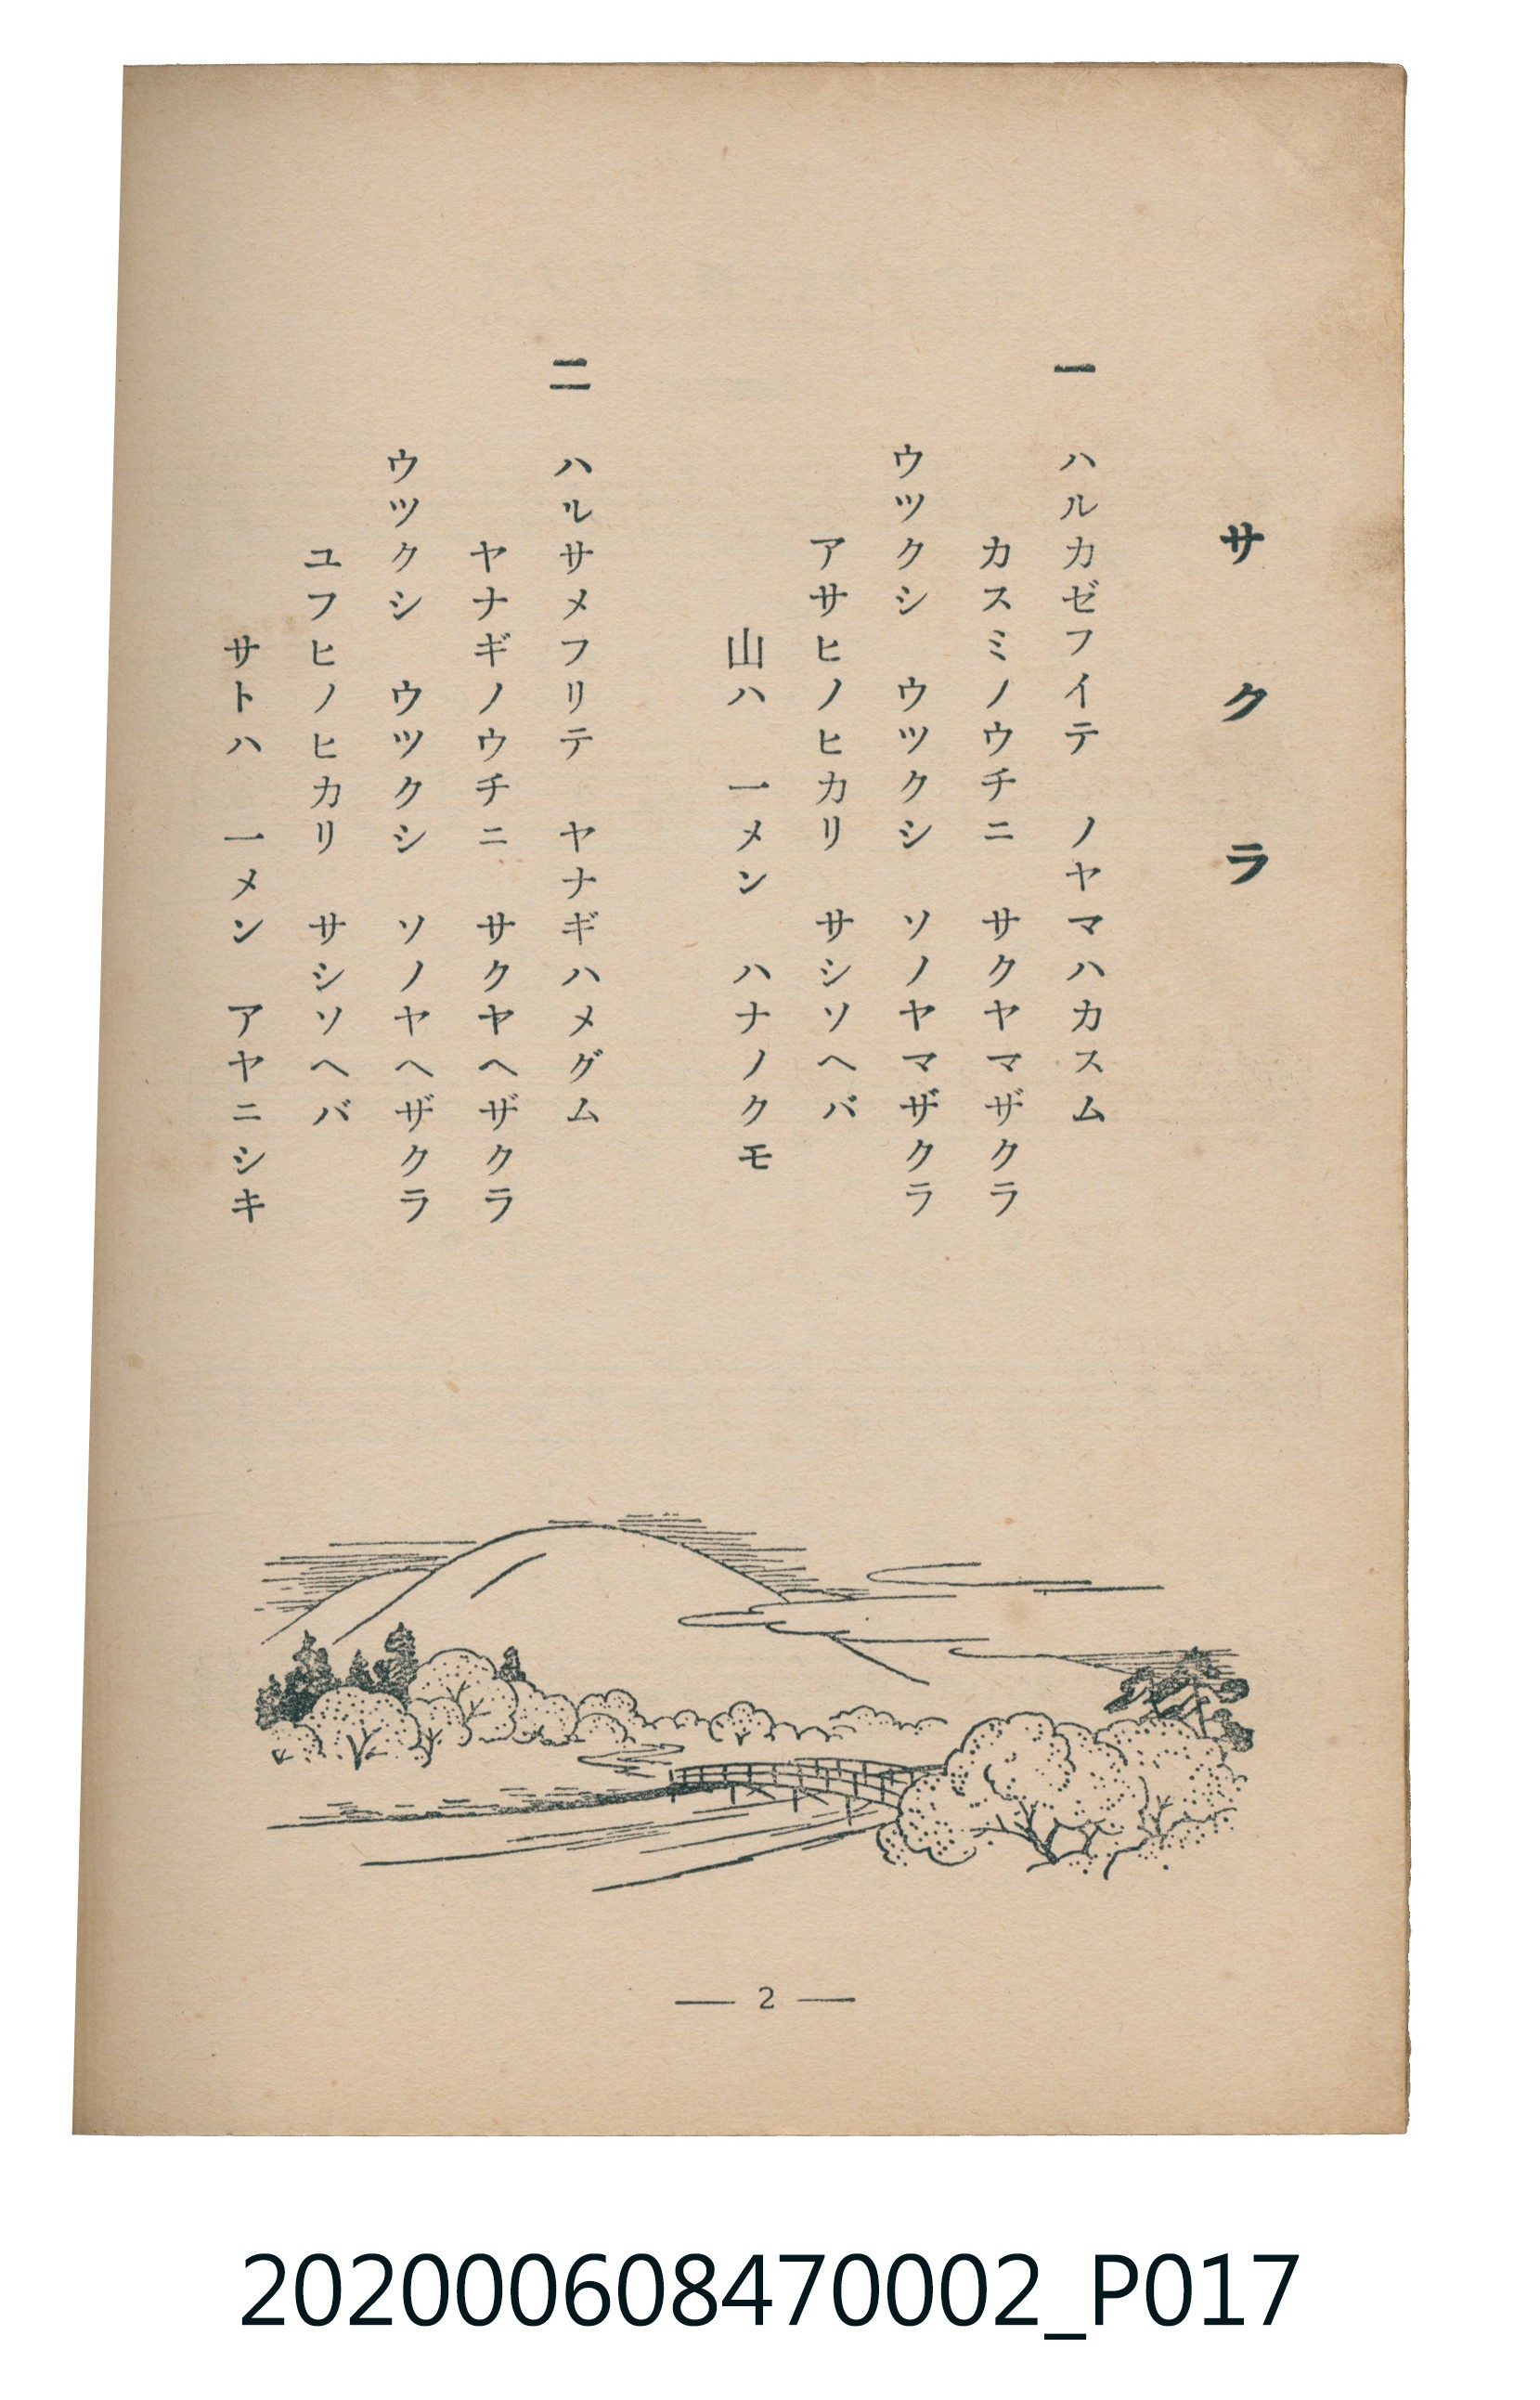 サクラ
一 ハルカゼフイテ ノヤマハカスム
カスミノウチニ サクヤマザクラ
ウツクシ ウツクシ ソノヤマザクラ
アサヒノヒカリ サシソヘバ
山ハ 一メン ハナノクモ
二 ハルサメフリテ ヤナギハメグム
ヤナギノウチニ サクヤヘザクラ
ウツクシ ウツクシ ソノヤヘザクラ
ユフヒノヒカリ サシソヘバ
サトハ 一メン アヤニシキ
— 2 —
202000608470002_P017